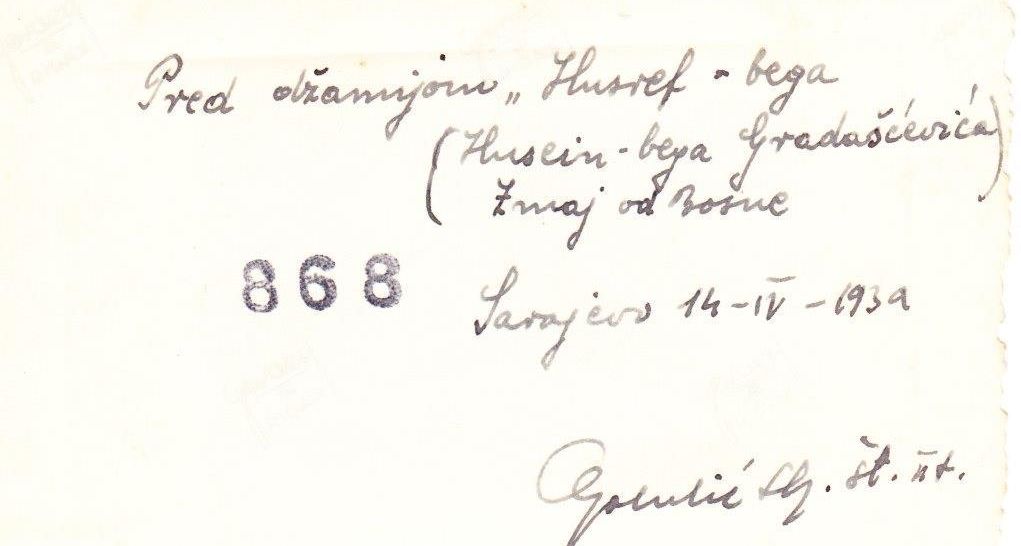 Pred džamijom „Husref - bega
(Husein - bega Gradaščevića)
Zmaj od Bosne
868
Sarajevo 14 - IV - 1939
št.